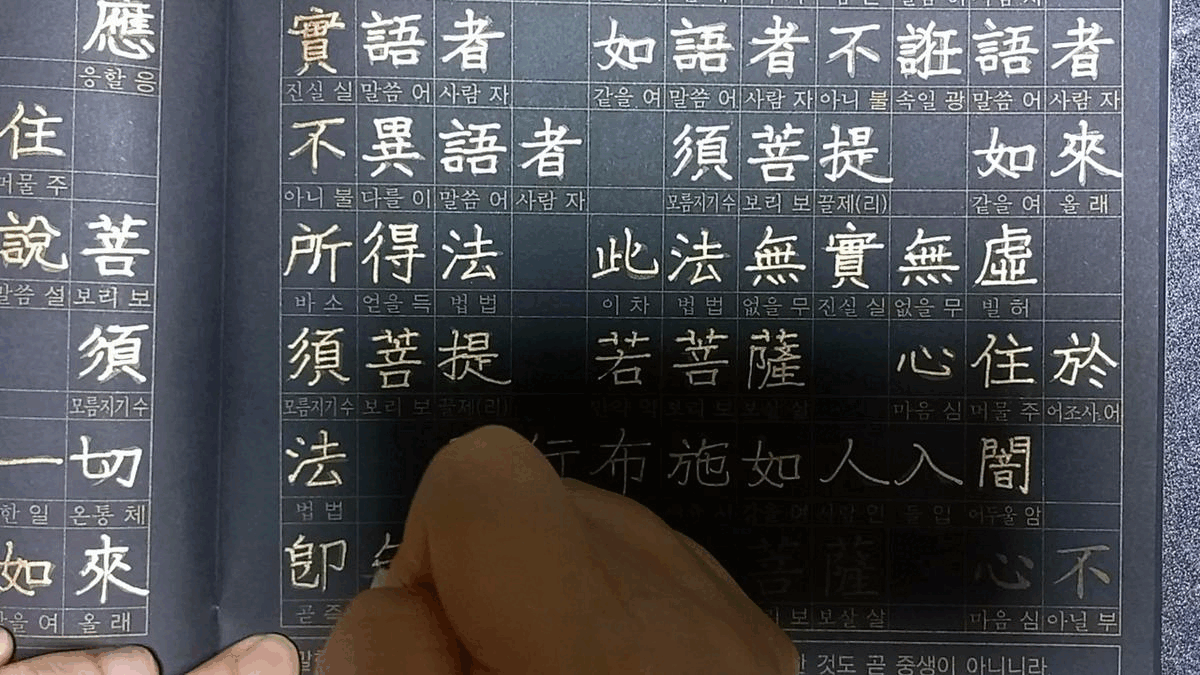 應
응할 응
住
머물 주
說 菩
말씀 설 보리 보
須
모름지기 수
一 切
한 일 온통 체
如 來
같을 여 올 래
實 語 者 如 語 者 不 誑 語 者
진실 실 말씀 어 사람 자 같을 여 말씀 어 사람 자 아니 불 속일 광 말씀 어 사람 자
不 異 語 者 須 菩 提 如 來
아니 불 다를 이 말씀 어 사람 자 모름지기 수 보리 보 끌제(리) 같을 여 올 래
所 得 法 此 法 無 實 無 虛
바 소 얻을 득 법 법 이 차 법 법 없을 무 진실 실 없을 무 빌 허
須 菩 提 若 菩 薩 心 住 於
모름지기 수 보리 보 끌제(리) 만약 약 보리 보 보살 살 마음 심 머물 주 어조사 어
法 行 布 施 如 人 入 闇
법 법 같을 여 사람 인 들 입 어두울 암
卽 菩 薩 心 不
곧 즉 보리 보 보살 살 마음 심 아닐 부
것도 곧 중생이 아니니라